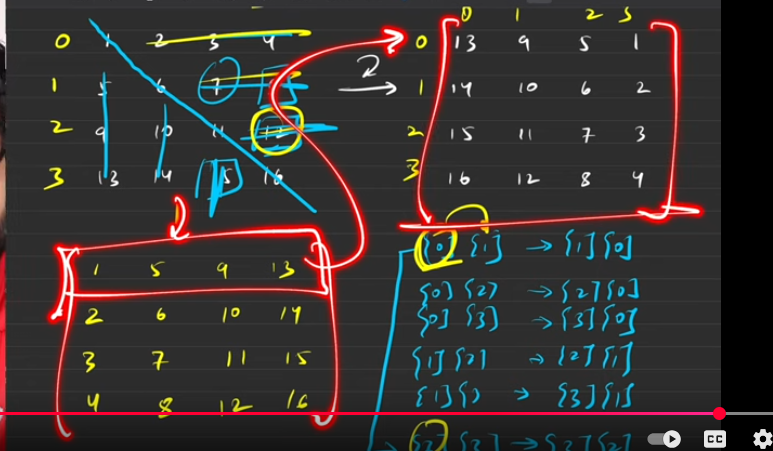 0 1 2 3 4
1 5 6 7
2 9 10 11 12
3 13 14 15 16
0 1 2 3
0 13 9 5 1
1 14 10 6 2
2 15 11 7 3
3 16 12 8 4
1 5 9 13
2 6 10 14
3 7 11 15
4 8 12 16
[0] [1] → [1][0]
[0] [2] → [2][0]
[0] [3] → [3][0]
[1][2] → [2][1]
[1] → [3][1]
[2] [3] → [3][2]
CC